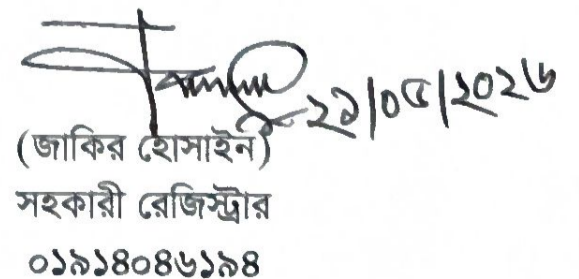 ২১/০৫/২০২৬
(জাকির হোসাইন)
সহকারী রেজিস্ট্রার
০১৯১৪০৪৬১৯৪